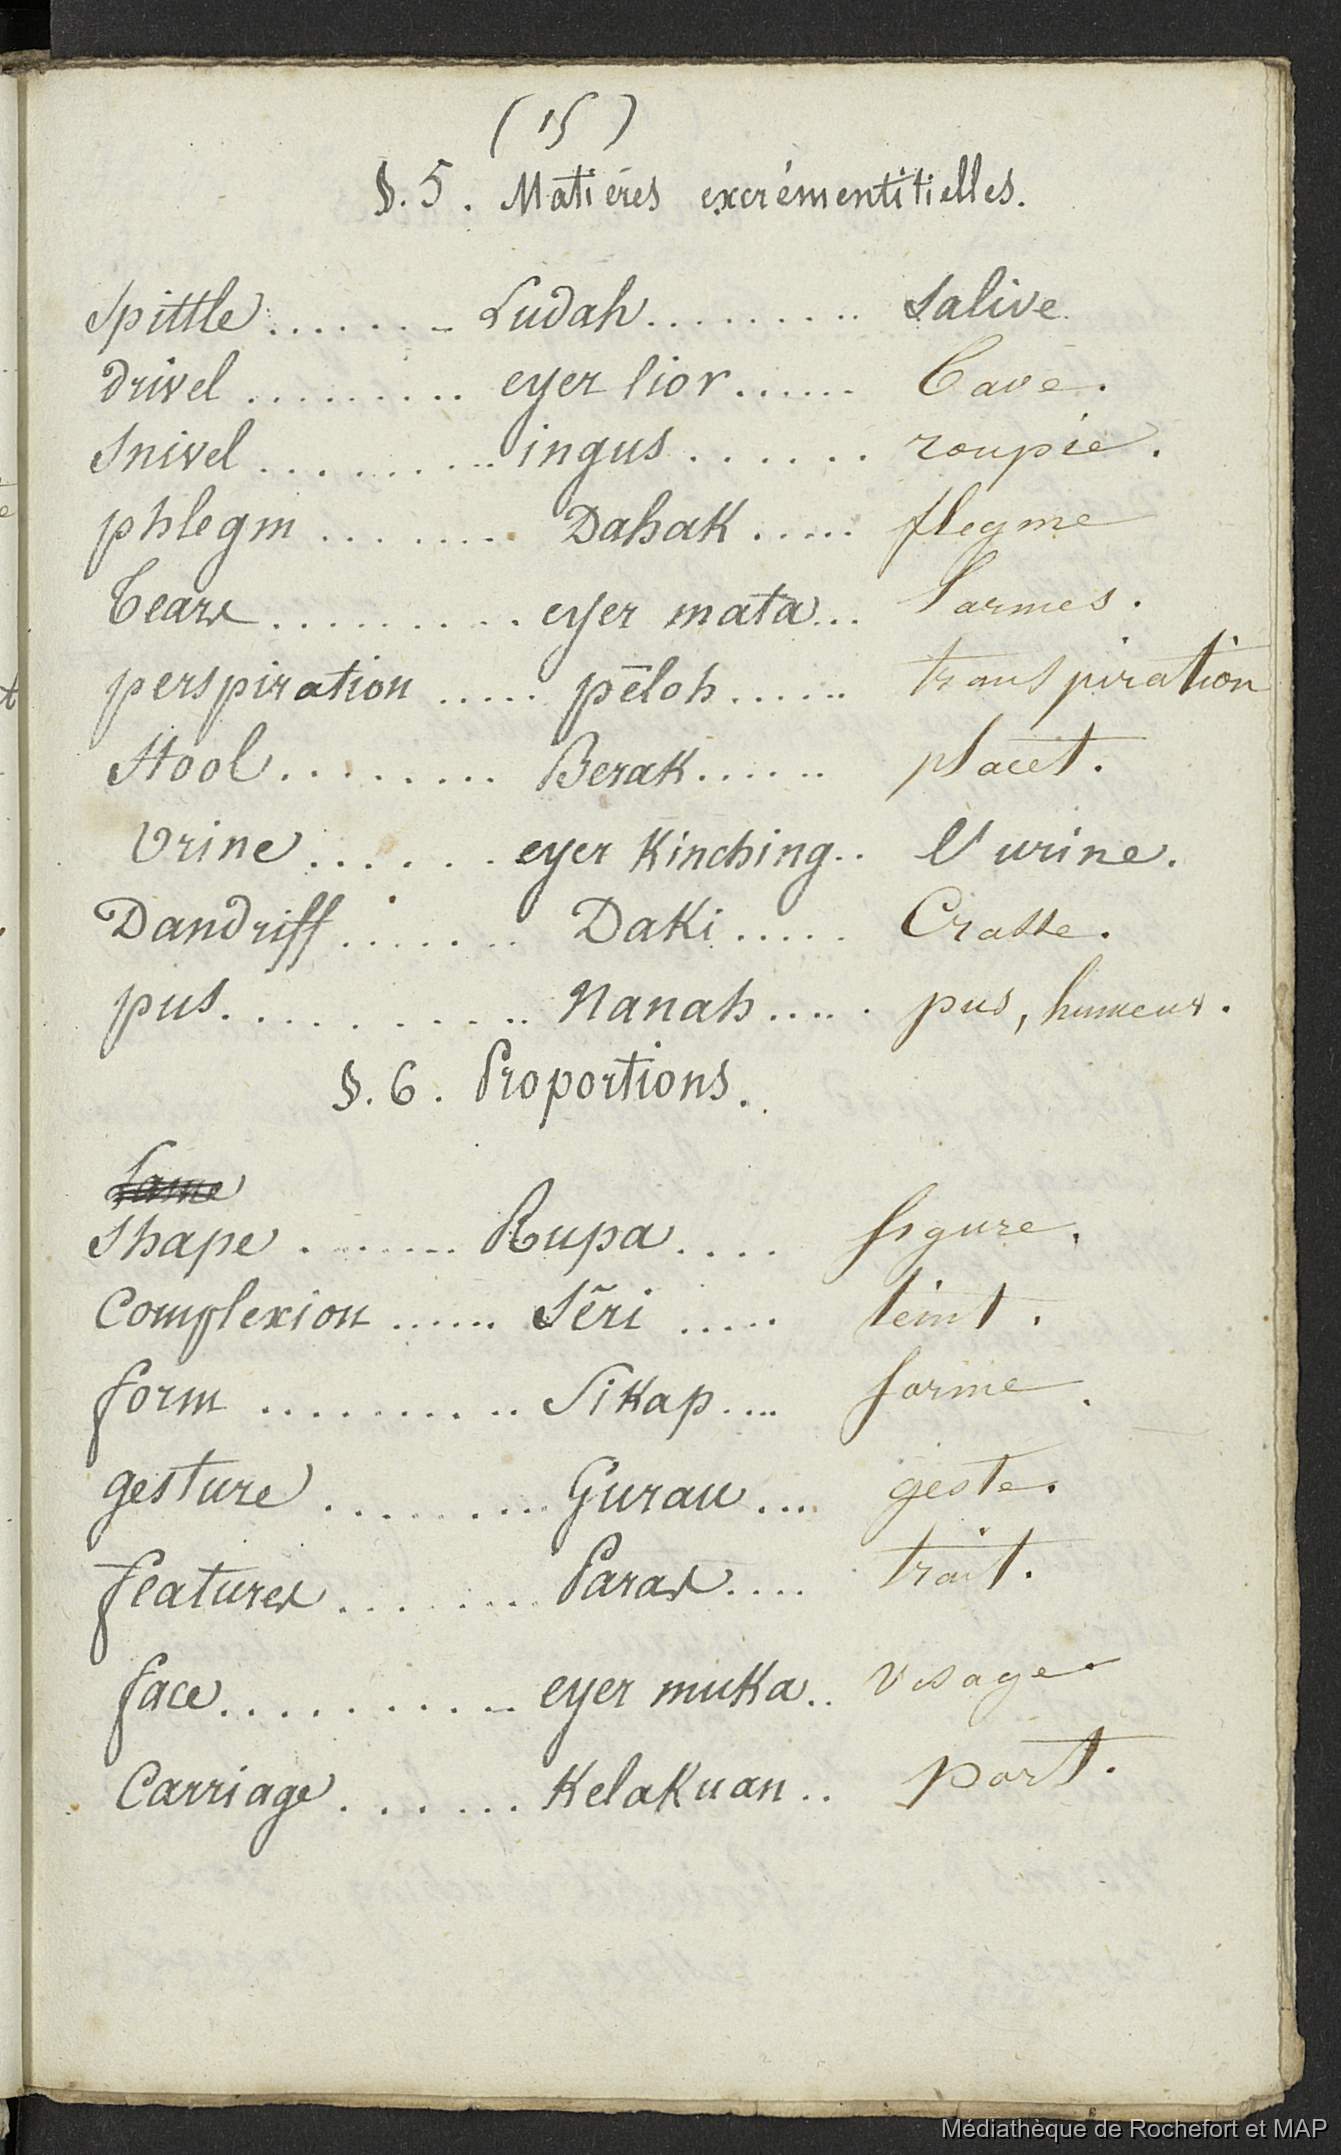 ( 15 )
§. 5. Matières excrémentitielles.
Spittle ....... Ludah ......... Salive
Drivel ......... eyer lior ...... Bave.
Snivel ......... ingus ...... roupie.
phlegm ....... Dahak ..... flegme
Tears ......... eyer mata ... larmes.
perspiration ..... pēloh ...... transpiration
Stool ........ Berak ......
Urine ...... eyer Kinching .. l'urine.
Dandriff ....... Daki ..... Crasse.
pus .......... Nanah ..... pus, humeur.
§. 6. Proportions.
Shape ....... Rupa .... figure.
Complexion ...... Sēri ..... teint.
form ......... Sikap .... forme.
gesture ........ Gurau .... geste.
features ........ Paras .... trait.
face .......... eyer muka .. visage
Carriage ....... Kelakuan .. port.
Médiathèque de Rochefort et MAP